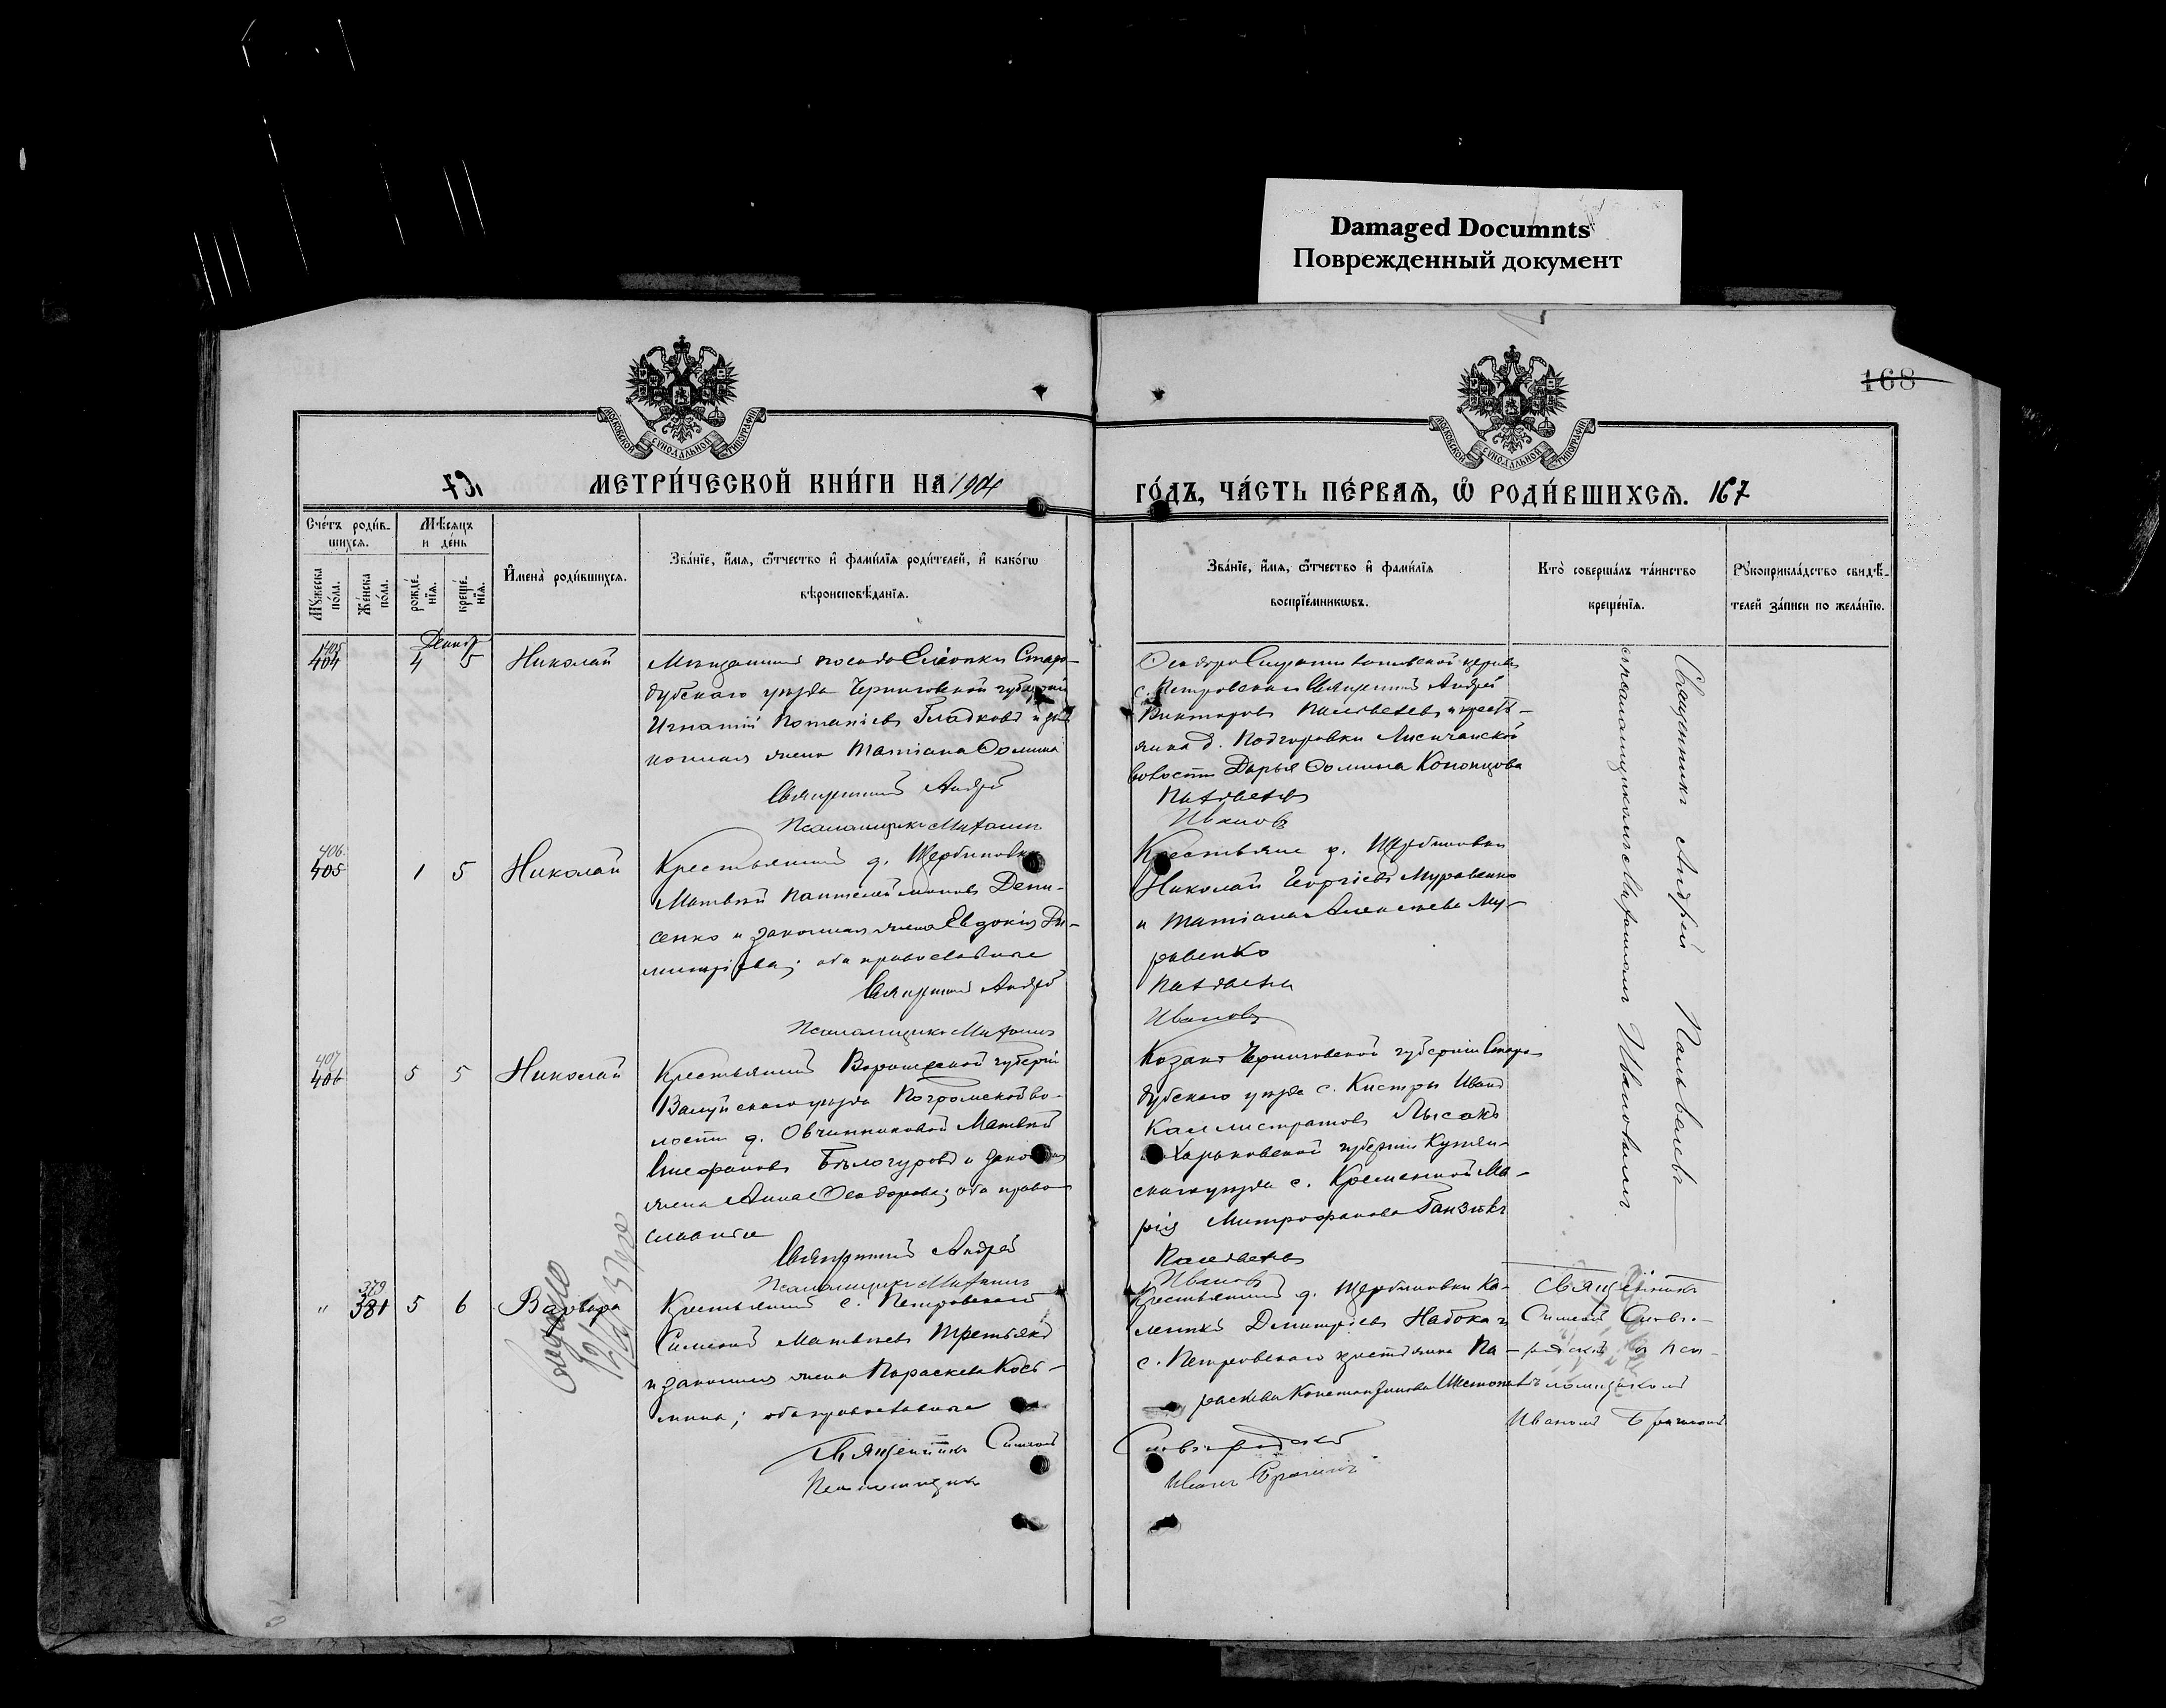 Damaged Documnts
Поврежденный документ
168
МОСКОВСКОЙ СУНОДАЛЬНОЙ ТИПОГРАФІИ
МОСКОВСКОЙ СУНОДАЛЬНОЙ ТИПОГРАФІИ
167
МЕТРИ́ЧЕСКОЙ КНИ́ГИ НА 1904
ГО́ДЪ, ЧА́СТЬ ПЕ́РВАѦ, Ѡ҆ РОДИ́ВШИХСѦ. 167
Сче́тъ роди́в-
шихсѧ.
Мꙋ́жеска по́ла.
Же́нска по́ла.
Мѣ́сѧцъ
и де́нь
рожде́нїѧ.
креще́нїѧ.
И҆мена̀ роди́вшихсѧ.
Зва́нїе, и҆́мѧ, ѻ҆́тчество и҆ фами́лїѧ роди́телей, и҆ како́гѡ
вѣроисповѣ́данїѧ.
Зва́нїе, и҆́мѧ, ѻ҆́тчество и҆ фами́лїѧ
воспрїе́мникѡвъ.
Кто̀ соверша́лъ та́инство
креще́нїѧ.
Рꙋкоприкла́дство свидѣ́-
телей за́писи по жела́нїю.
405
404
Декаб
4 5
Николай
Мѣщанинъ посада Еліонки Старо-
дубскаго уѣзда Черниговской губерніи
Игнатій Потапіевъ Гладковъ и за
конная жена Татіана Ѳомина
Священникъ Андрей
Псаломщикъ Митрофанъ
с. Петровскаго Священникъ Андрей
Викторовъ Пальвелевъ и кресть-
янка д. Подгоровки Лисичанской
волости Дарья Ѳомина Кононцова
Пальвелевъ
Ивановъ
Священникъ Андрей Пальвелевъ
406
405
1 5
Николай
Крестьянинъ д. Щербиновки
Матвей Пантелеймоновъ Дени-
сенко и законная жена Евдокія Ди-
митріева; оба православные
Священникъ Андрей
Псаломщикъ Митрофанъ
Крестьяне д. Щербиновки
Николай Георгіевъ Муравенко
и Татіана Алексѣева Му-
равенко
Пальвелевъ
Ивановъ
407
406
5 5
Николай
Крестьянинъ Воронежской губерніи
Валуйскаго уѣзда Погромской во-
лости д. Овчинниковой Матвей
Стефановъ Бѣлогуровъ и законная
жена Анна Ѳеодорова; оба право-
славные
Священникъ Андрей
Псаломщикъ Митрофанъ
Козакъ Черниговской губерніи Старо-
дубскаго уѣзда с. Кистры Иванъ
Каллистратовъ Лысакъ
и Харьковской губерніи Купян-
скаго уѣзда с. Кременной Ма-
рія Митрофанова Ганзюкъ
Пальвелевъ
Ивановъ
"
379
381
5 6
Варвара
Крестьянинъ с. Петровскаго
Симеонъ Матвѣевъ Третьякъ
и законная жена Параскева Козь-
мина; оба православные
Священникъ Симеонъ
Псаломщикъ
Крестьянинъ д. Щербиновки Ка-
Димитріевъ Набока и
с. Петровскаго крестьянка Па-
раскева Константинова
Иванъ Брагинъ
Священникъ
Симеонъ
Иваномъ Брагинымъ